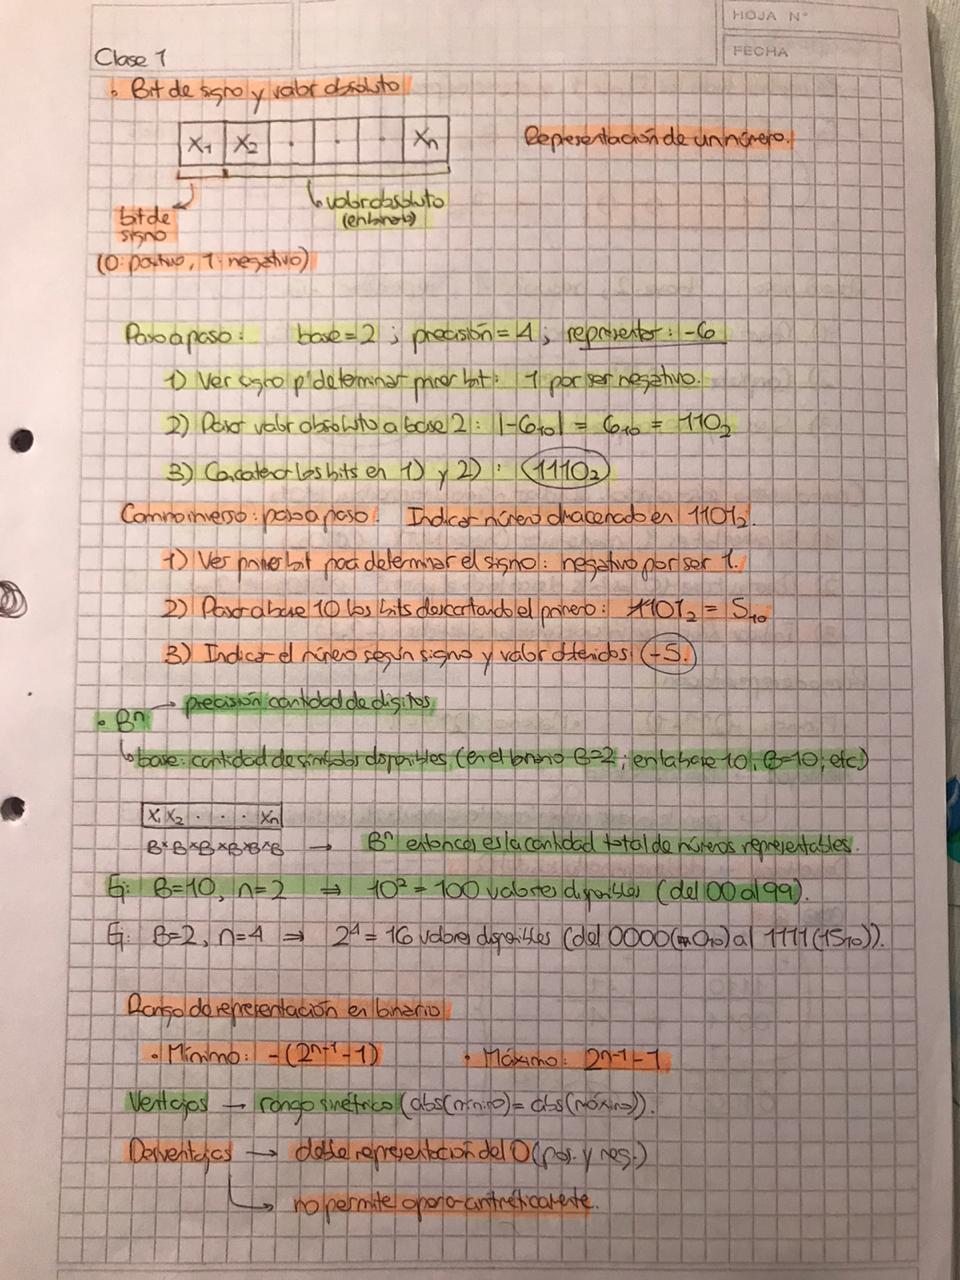 HOJA N°
FECHA
Clase 1
• Bit de signo y valor absoluto
X1 X2 . . . Xn
Representación de un número.
bit de signo
valor absoluto
(en binario)
(0: positivo, 1: negativo)
Paso a paso: base = 2 ; precisión = 4 ; representar: -6
1) Ver signo p' determinar primer bit: 1 por ser negativo.
2) Pasar valor absoluto a base 2: |-6₁₀| = 6₁₀ = 110₂
3) Concatenar los bits en 1) y 2): 1110₂
Camino inverso: paso a paso. Indicar número almacenado en 1101₂.
1) Ver primer bit para determinar el signo: negativo por ser 1.
2) Pasar a base 10 los bits descartando el primero: 1101₂ = 5₁₀
3) Indicar el número según signo y valor obtenidos: -5.
→ precisión: cantidad de dígitos
• Bⁿ
↳ base: cantidad de símbolos disponibles (en el binario B=2; en la base 10, B=10; etc)
X1 X2 . . . Xn
B×B×B×B×B×B → Bⁿ entonces es la cantidad total de números representables.
Ej: B=10, n=2 ⇒ 10² = 100 valores disponibles (del 00 al 99).
Ej: B=2, n=4 ⇒ 2⁴ = 16 valores disponibles (del 0000 (0₁₀) al 1111 (15₁₀)).
Rango de representación en binario
• Mínimo: -(2ⁿ⁻¹-1) • Máximo: 2ⁿ⁻¹-1
Ventajas → rango simétrico (abs(mínimo) = abs(máximo)).
Desventajas → doble representación del 0 (pos. y neg.)
→ no permite operar aritméticamente.